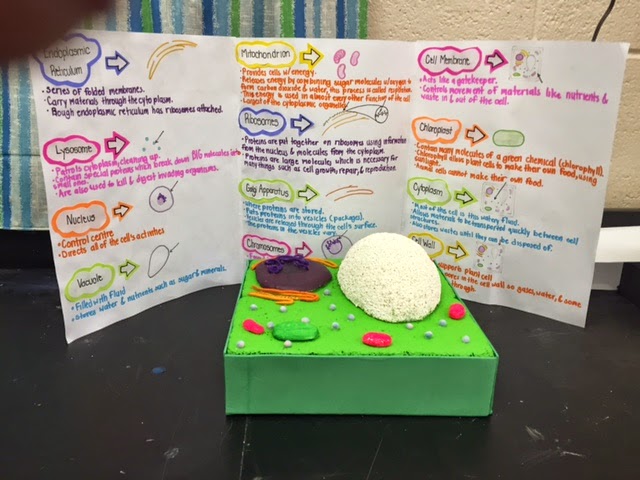 Endoplasmic
Reticulum
• Series of folded membranes.
• Carry materials through the cytoplasm.
• Rough endoplasmic reticulum has ribosomes attached.
Lysosome
• Patrols cytoplasm, cleaning up.
• Contain special proteins which break down BIG molecules into
small ones.
• Are also used to kill & digest invading organisms.
Nucleus
• Control centre
• Directs all of the cell's activities
Vacuole
• Filled with fluid
• Stores water & nutrients such as sugar & minerals.
Mitochondrion
• Provides cells w/energy.
• Releases energy by combining sugar molecules w/oxygen to
form carbon dioxide & water, this process is called respiration.
• This energy is used in almost every other function of the cell
• Largest of the cytoplasmic organelles
Ribosomes
• Proteins are put together on ribosomes using information
from the nucleus & molecules from the cytoplasm.
• Proteins are large molecules which is necessary for
many things such as cell growth, repair, & reproductive
Golgi Apparatus
• Where proteins are stored.
• Puts proteins into vesicles (packages).
• Vesicles are released through the cell's surface.
• The proteins in the vesicles vary.
Chromosomes
Cell Membrane
• Acts like a gatekeeper.
• Controls movement of materials like nutrients &
waste in & out of the cell.
Chloroplast
• Contain many molecules of a green chemical (chlorophyll).
• Chlorophyll allows plant cells to make their own food, using
sunlight.
• Animal cells cannot make their own food.
Cytoplasm
• Most of the cell is this watery fluid.
• Allows materials to be transported quickly between cell
structures.
• Also stores wastes until they can be disposed of.
Cell Wall
plant cell
in the cell wall so gases, water, & some
through.